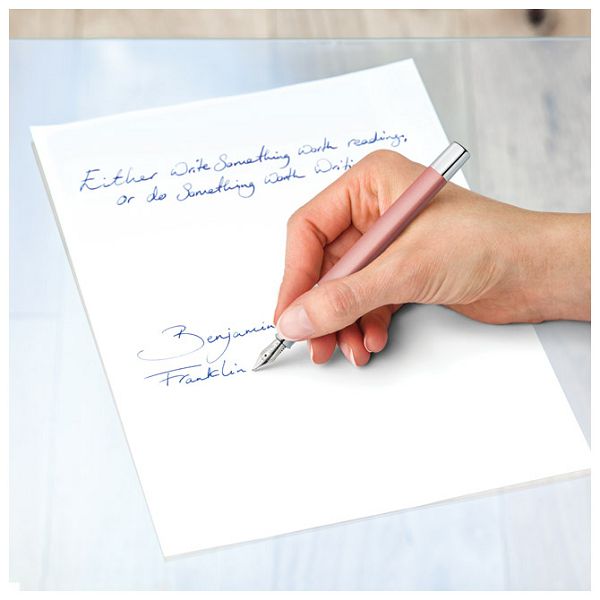 Either write Something worth reading,
or do Something worth Writi
Benjamin
Franklin